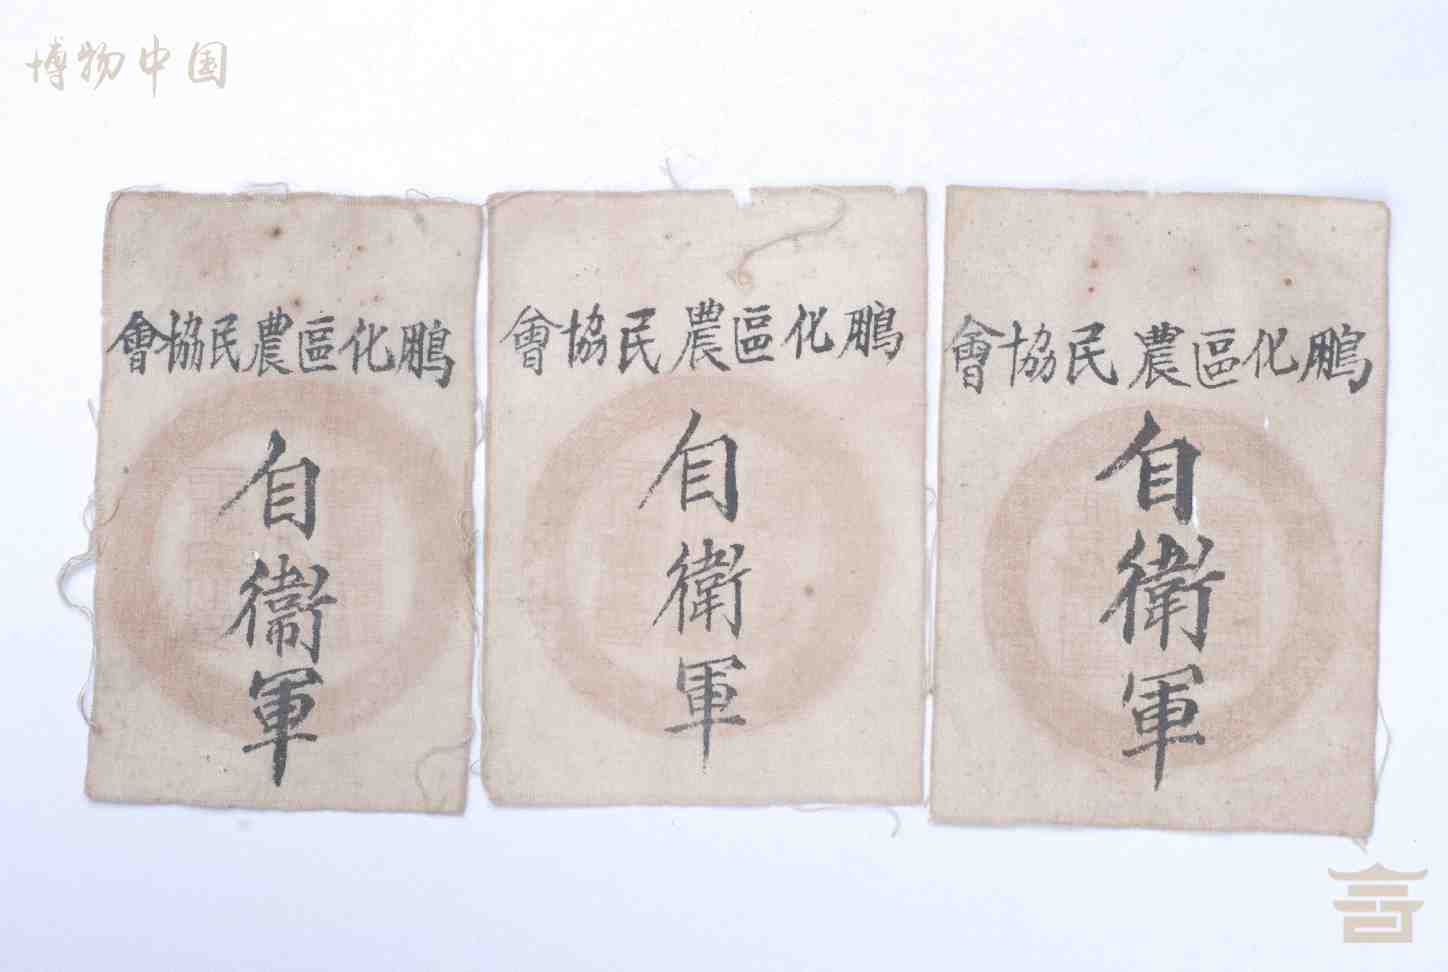 博物中国
鵬化區農民協會
自衛軍
鵬化區農民協會
自衛軍
鵬化區農民協會
自衛軍